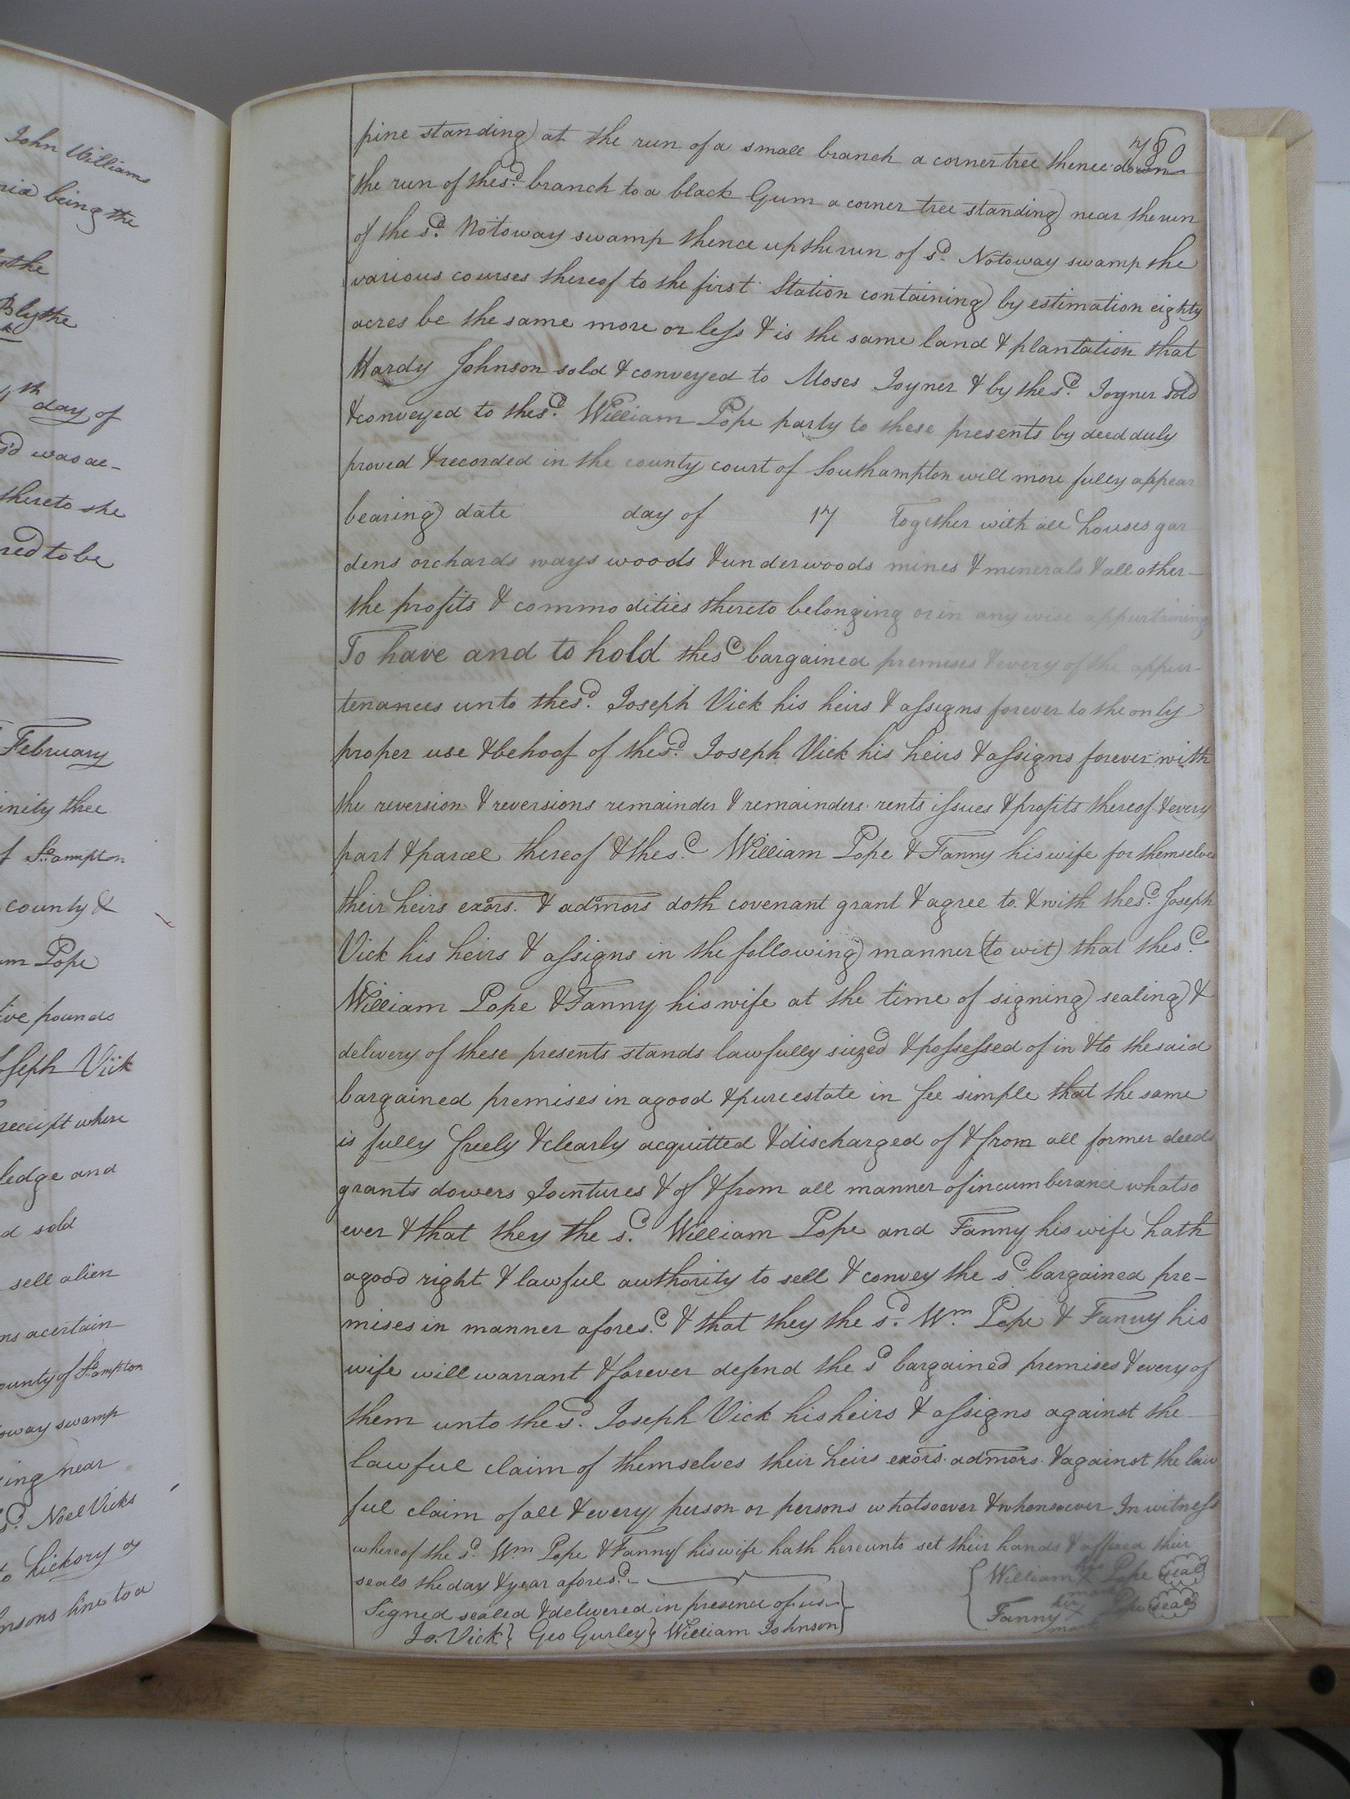 John Williams
being the
the
Blythe
th day of
s'd was ac-
thereto she
red to be
February
ninety three
f S°.ampton
county &
am Pope
five pounds
Joseph Vick
receipt where
ledge and
d sold
sell alien
ns a certain
county of S°.ampton
toway swamp
ing near
sd. Noel Vicks
to hickory a
nsons line to a
780
pine standing at the run of a small branch a corner tree thence down
the run of the sd. branch to a black Gum a corner tree standing near the run
of the sd. Notoway swamp thence up the run of sd. Notoway swamp the
various courses thereof to the first Station containing by estimation eighty
acres be the same more or less & is the same land & plantation that
Hardy Johnson sold & conveyed to Moses Joyner & by the sd. Joyner sold
& conveyed to the sd. William Pope party to these presents by deed duly
proved & recorded in the county court of Southampton will more fully appear
bearing date day of 17 Together with all houses gar
dens orchards ways woods & underwoods mines & minerals & all other
the profits & commodities thereto belonging or in any wise appurtaining
To have and to hold the sd bargained premises & every of the appur-
tenances unto the sd. Joseph Vick his heirs & assigns forever to the only
proper use & behoof of the sd. Joseph Vick his heirs & assigns forever with
the reversion & reversions remainder & remainders rents issues & profits thereof & every
part & parcel thereof & the sd. William Pope & Fanny his wife for themselves
their heirs exors. & admors doth covenant grant & agree to & with the sd. Joseph
Vick his heirs & assigns in the following manner (to wit) that the sd.
William Pope & Fanny his wife at the time of signing sealing &
delivery of these presents stands lawfully siezed & possessed of in & to the said
bargained premises in a good & pure estate in fee simple that the same
is fully freely & clearly acquitted & discharged of & from all former deeds
grants dowers Jointures & of & from all manner of incumberance whatso
ever & that they the sd. William Pope and Fanny his wife hath
a good right & lawful authority to sell & convey the sd. bargained pre-
mises in manner aforesd. & that they the sd. Wm Pope & Fanny his
wife will warrant & forever defend the sd bargained premises & every of
them unto the sd. Joseph Vick his heirs & assigns against the
lawful claim of themselves their heirs exors. admors. & against the law
ful claim of all & every person or persons whatsoever & whensoever In witness
whereof the sd. Wm Pope & Fanny his wife hath hereunto set their hands & affixed their
seals the day & year aforesd.
William his X mark Pope seal
Signed sealed & delivered in presence of us
Fanny her X mark Pope seal
Jo. Vick } Geo Gurley } William Johnson